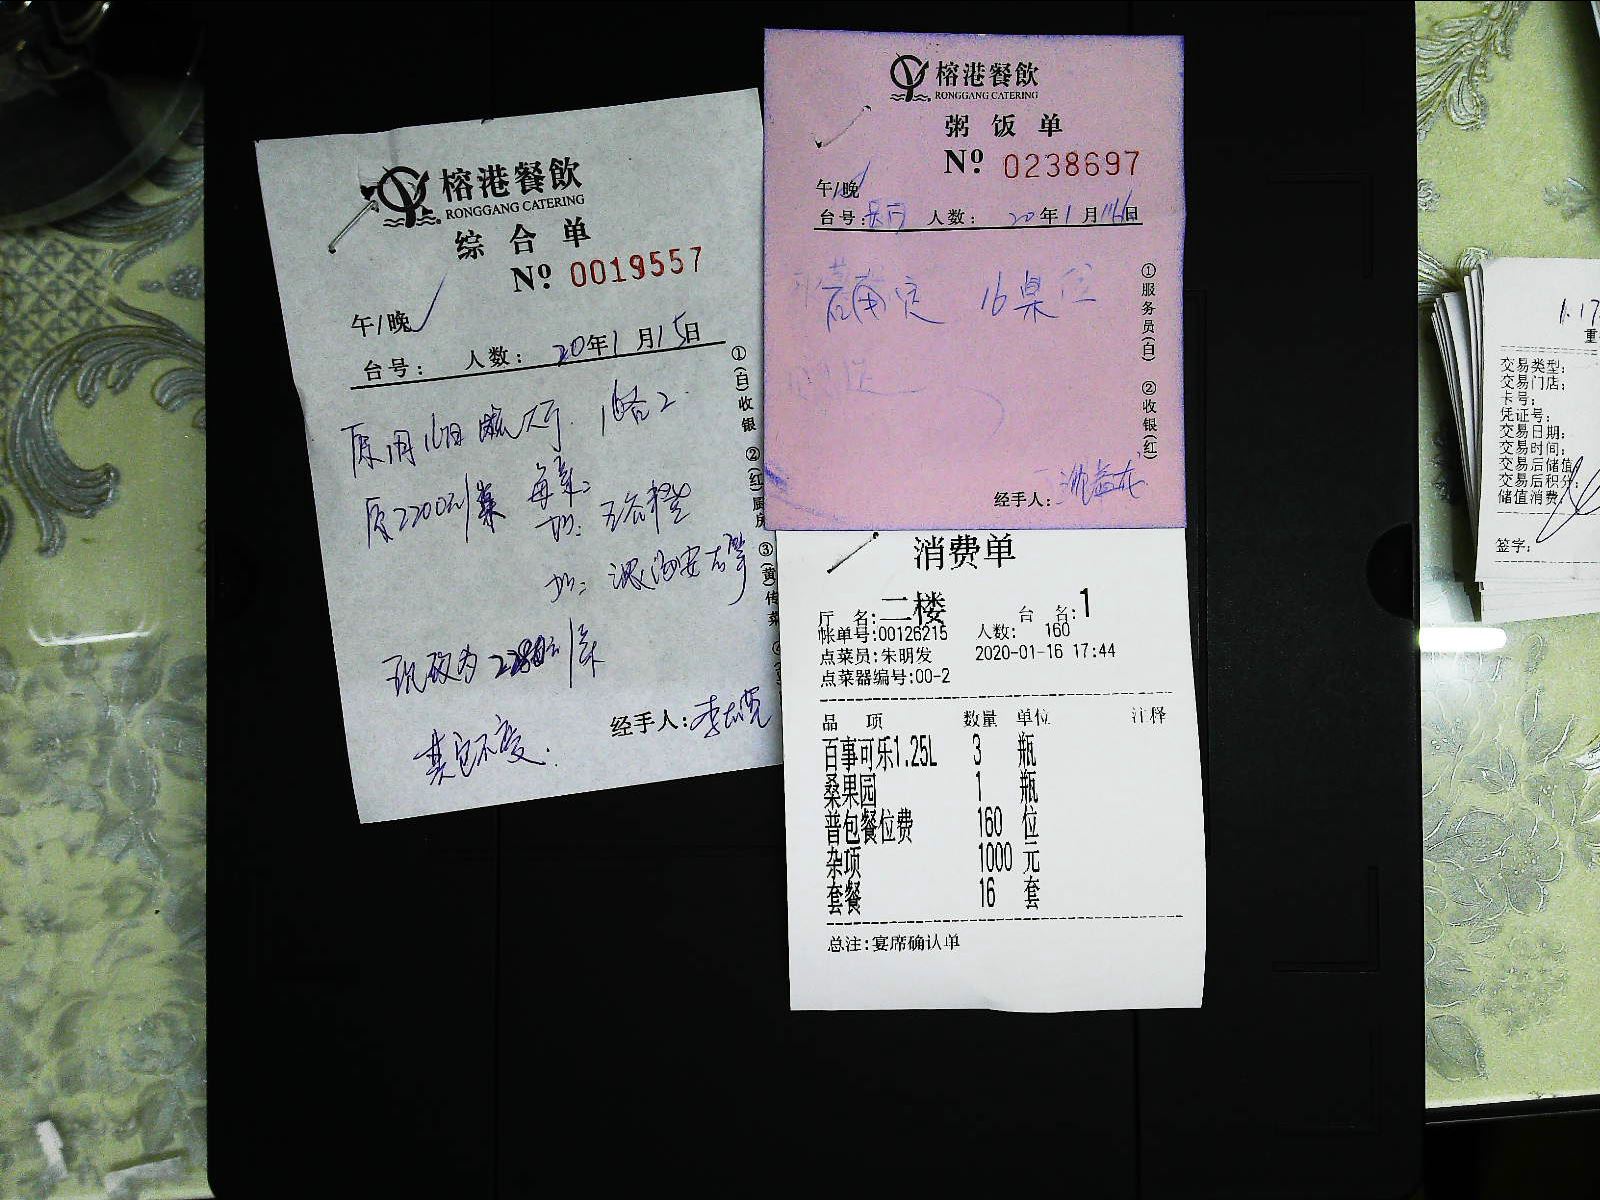 榕港餐飲
RONGGANG CATERING
综合单
Nº 0019557
午/晚
台号： 人数： 20年1月15日
原2200元/桌 每桌
加：五谷丰登
现改为2280元/桌
其它不变.
经手人:
①(白)收银 ②(红)厨房 ③(黄)传菜
榕港餐飲
RONGGANG CATERING
粥饭单
Nº 0238697
午/晚
台号: 人数： 20年1月16日
16桌位
①服务员(白) ②收银(红)
经手人:
消费单
厅 名:二楼 台 名:1
帐单号:00126215 人数: 160
点菜员:朱明发 2020-01-16 17:44
点菜器编号:00-2
品 项 数量 单位 注释
百事可乐1.25L 3 瓶
桑果园 1 瓶
普包餐位费 160 位
杂项 1000 元
套餐 16 套
总注:宴席确认单
1.17
重
交易类型:
交易门店:
卡号:
凭证号:
交易日期:
交易时间:
交易后储值
交易后积分:
储值消费:
签字: